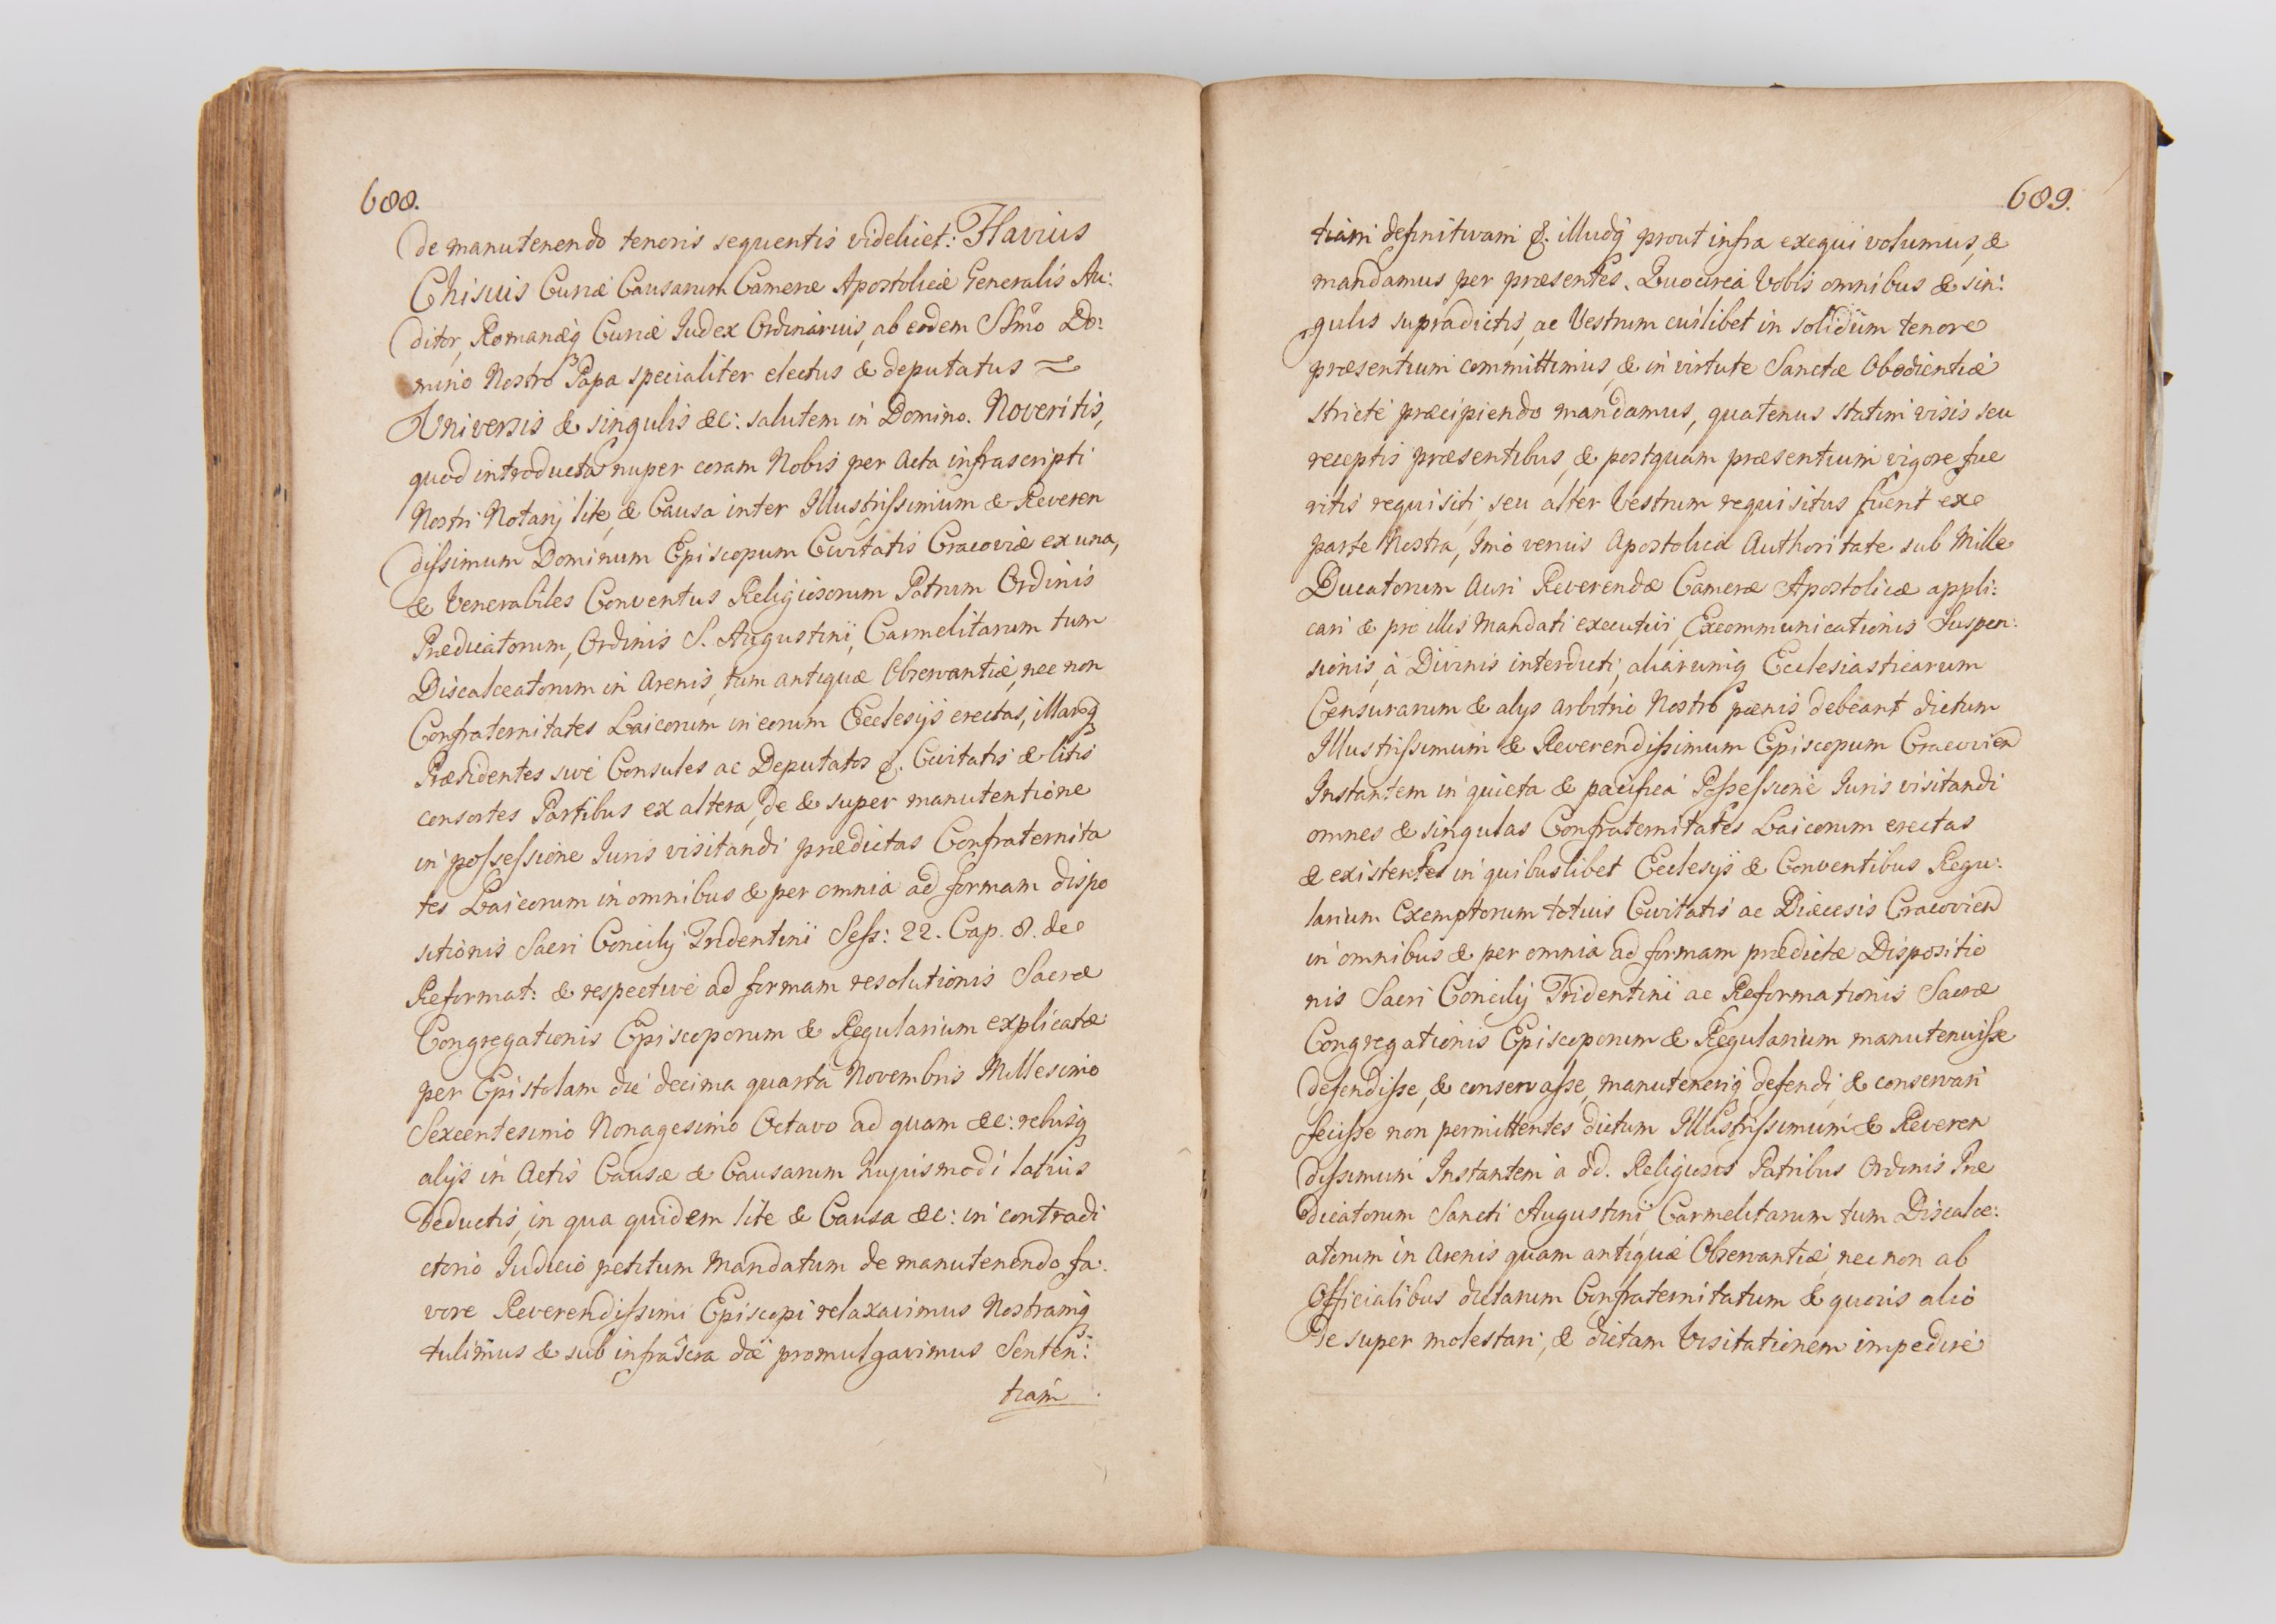 688.
de manutenendo tenoris sequentis videlicet: Flavius
Chisius Curiæ Causarum Cameræ Apostolicæ Generalis Au:
ditor, Romanæq Curiæ Iudex Ordinarius, ab eodem SSm̃o Do:
mino Nostro Papa specialiter electus & deputatus
Universis & singulis &c: salutem in Domino. Noveritis,
quod introducta nuper coram Nobis per Acta infrascripti
Nostri Notarij lite, & Causa inter Illustrissimum & Reveren
dissimum Dominum Episcopum Civitatis Cracoviæ ex una,
& Venerabiles Conventus Religiosorum Patrum Ordinis
Prædicatorum, Ordinis S. Augustini, Carmelitarum tum
Discalceatorum in Arenis, tum antiquæ Observantiæ, nec non
Confraternitates Laicorum in eorum Ecclesijs erectas, illarq
Præsidentes sive Consules ac Deputatos &. Civitatis & litis
consortes Partibus ex altera, de & super manutentione
in possessione Iuris visitandi prædictas Confraternita
tes Laicorum in omnibus & per omnia ad formam dispo
sitionis Sacri Concilij Tridentini Sess: 22. Cap. 8. de
Reformat: & respective ad formam resolutionis Sacræ
Congregationis Episcoporum & Regularium explicatæ
per Epistolam die decima quarta Novembris Millesimo
Sexcentesimo Nonagesimo Octavo ad quam &c: rebusq
alijs in Actis Causæ & Causarum hujusmodi latius
deductis, in qua quidem lite & Causa &c: in contradi
ctorio Iudicio petitum Mandatum de manutenendo fa:
vore Reverendissimi Episcopi relaxavimus Nostramq
tulimus & sub infrascra die promulgavimus Senten:
tiam
689.
tiam definitivam &. illudq prout infra exequi volumus, &
mandamus per præsentes. Quocirca Vobis omnibus & sin:
gulis supradictis, ac Vestrum cuilibet in solidum tenore
præsentium committimus, & in virtute Sanctæ Obedientiæ
stricte præcipiendo mandamus, quatenus statim visis seu
receptis præsentibus, & postquam præsentium vigore fue
ritis requisiti, seu alter Vestrum requisitus fuerit exe
parte Nostra, Imo verius Apostolica Authoritate sub Mille
Ducatorum Auri Reverendæ Cameræ Apostolicæ appli:
cari & pro illis Mandati executivi, Excommunicationis Suspen:
sionis, à Divinis interdicti, aliarumq Ecclesiasticarum
Censurarum & alijs arbitrio Nostro pœnis debeant dictum
Illustrissimum & Reverendissimum Episcopum Cracovien
Instantem in quieta & pacifica Possessione Iuris visitandi
omnes & singulas Confraternitates Laicorum erectas
& existentes in quibuslibet Ecclesijs & Conventibus Regu:
larium Exemptorum totius Civitatis ac Diæcesis Cracovien
in omnibus & per omnia ad formam prædictæ Dispositio
nis Sacri Concilij Tridentini ac Reformationis Sacræ
Congregationis Episcoporum & Regularium manutenuisse
defendisse, & conservasse, manutenerig defendi, & conservari
fecisse non permittentes dictum Illustrissimum & Reveren
dissimum Instantem à dd. Religiosis Patribus Ordinis Præ
dicatorum Sancti Augustini Carmelitarum tum Discalce:
atorum in Arenis quam antiquæ Observantiæ, nec non ab
Officialibus dictarum Confraternitatum & quovis alio
de super molestari, & dictam Visitationem impedire